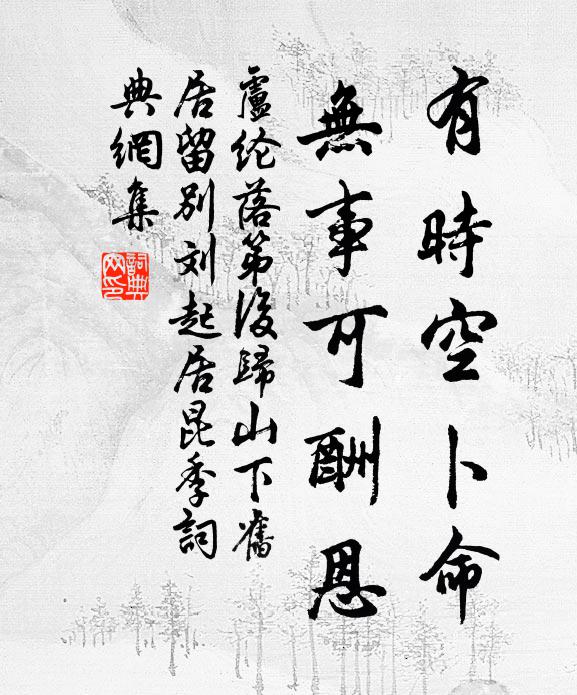 有時空卜命
無事可酬恩
盧纶落第後歸山下舊
居留别刘起居昆季詞
典網集
詞典网印